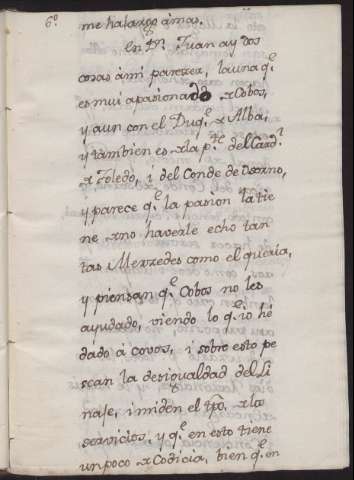 6º. me ha largo âmas.
En Dn. Juan ay dos
cosas ámi parezer, launa q.e
es mui apasionado de Cobos,
y aun con el Duq.e de Alba,
y tambien es de la p.te del Card.l
de Toledo, i del Conde de Osorno,
y parece q.e la pasion la tie
ne de no haverle echo tan
tas Merzedes como el queria,
y piensan q.e Cobos no les
ayudado, viendo lo q.e io hé
dado á covos, i sobre esto pe
scan la desigualdad del Li
naje, i miden el tpô. de los
servicios, y q.e en esto tiene
un poco de Codicia, bien q.e en